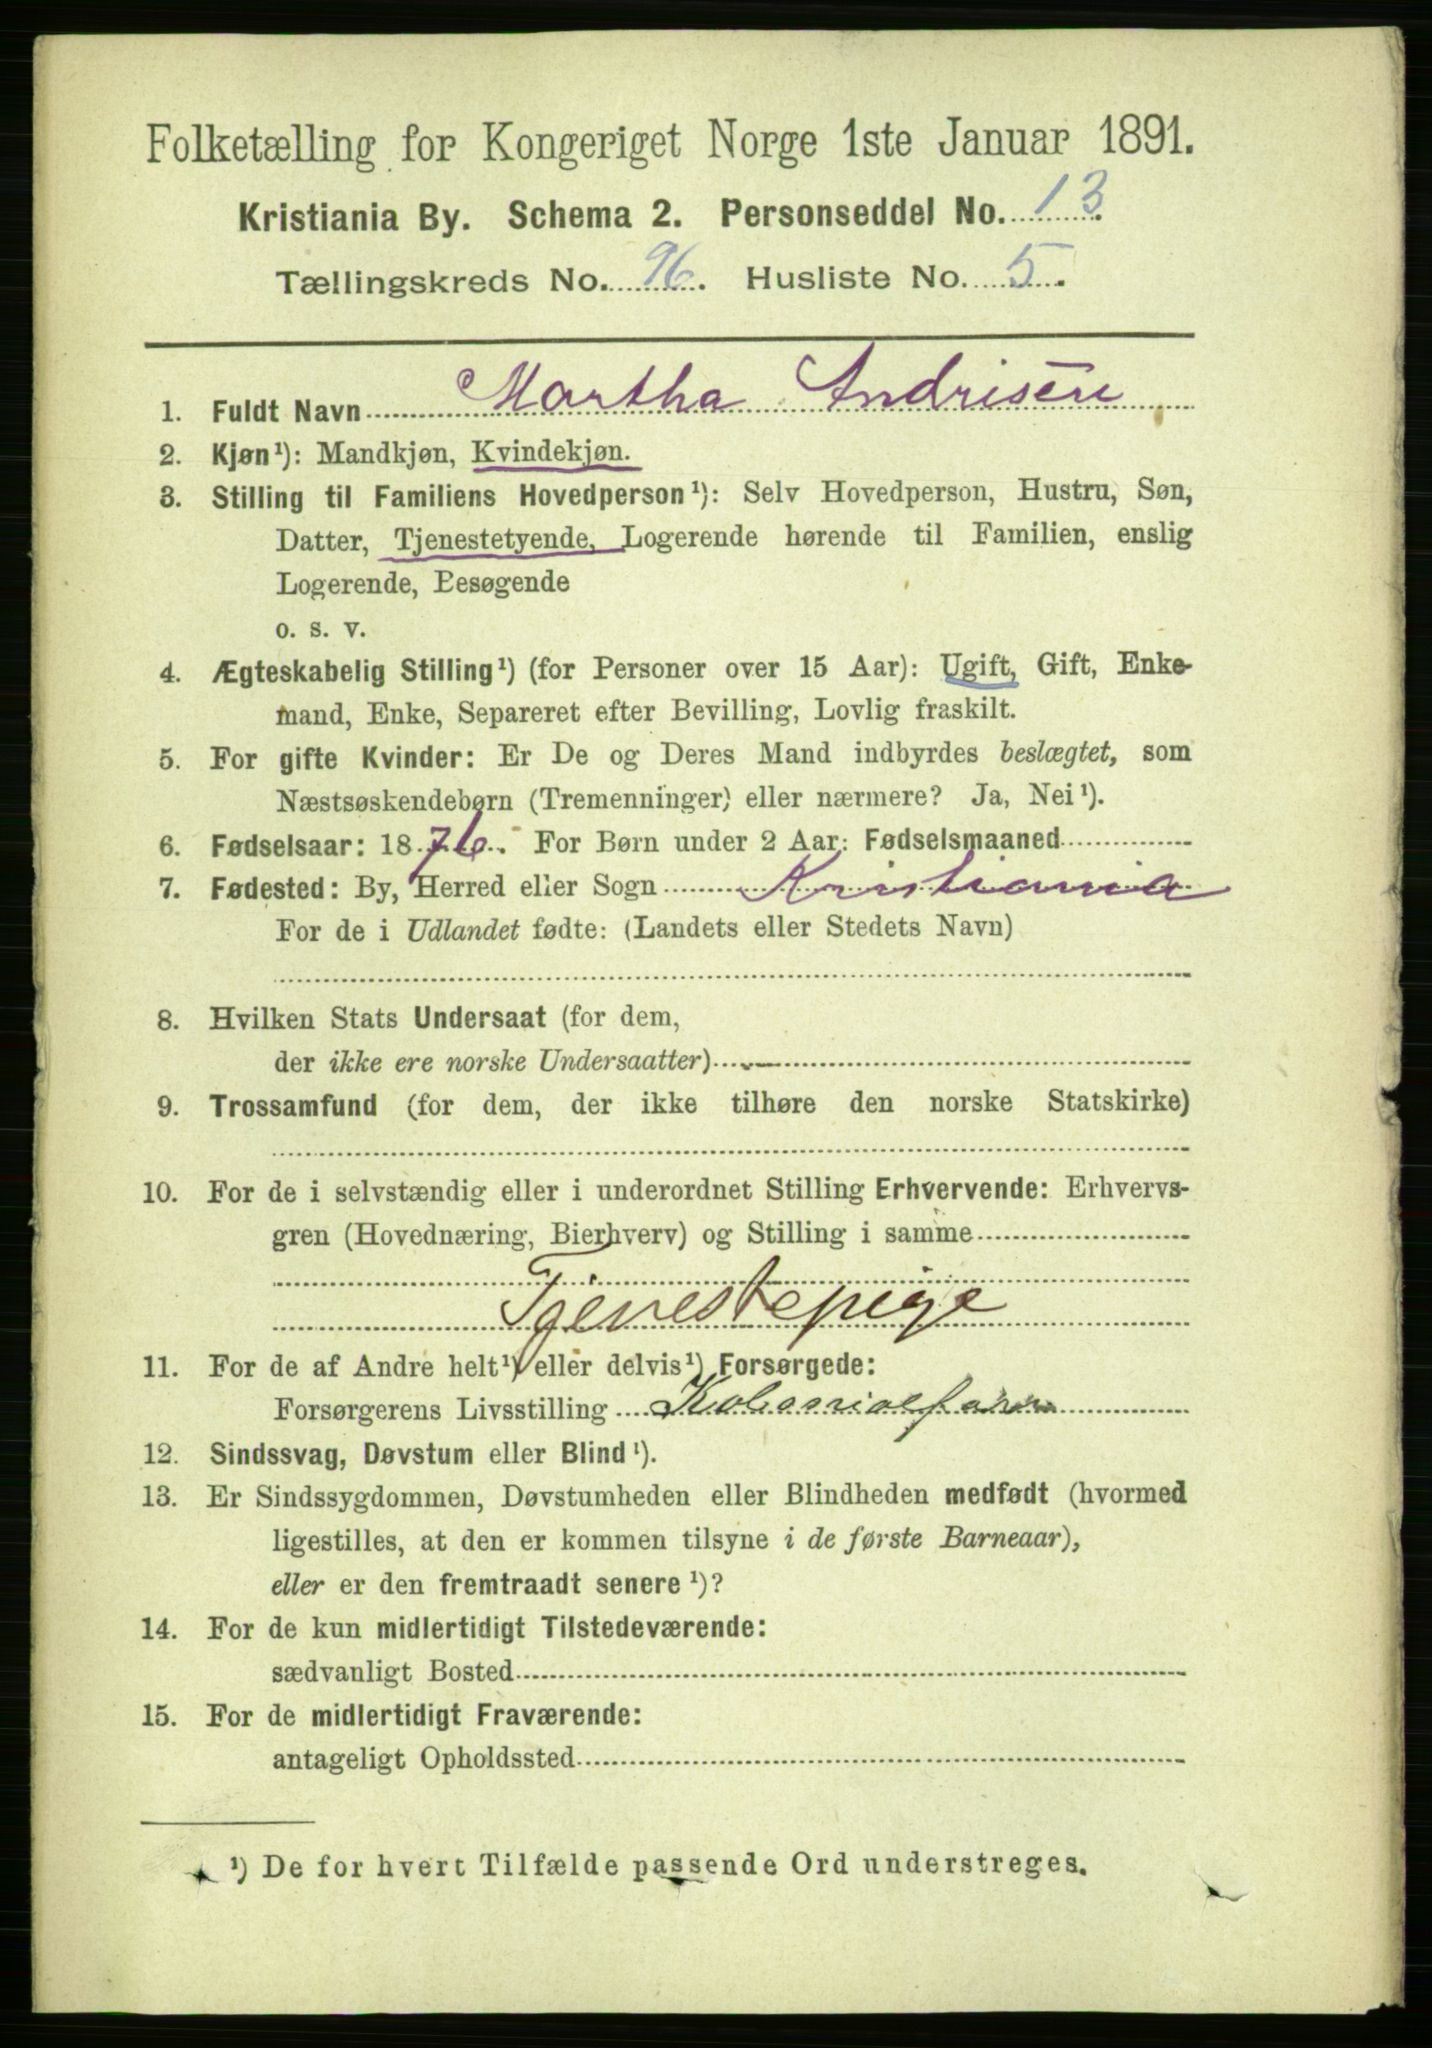 Folketælling for Kongeriget Norge 1ste Januar 1891.
Kristiania By. Schema 2. Personseddel No. 13.
Tællingskreds No. 96. Husliste No. 5.
1. Fuldt Navn Martha Andrisen
2. Kjøn¹): Mandkjøn, Kvindekjøn.
3. Stilling til Familiens Hovedperson¹): Selv Hovedperson, Hustru, Søn,
Datter, Tjenestetyende, Logerende hørende til Familien, enslig
Logerende, Besøgende
o. s. v.
4. Ægteskabelig Stilling¹) (for Personer over 15 Aar): Ugift, Gift, Enke-
mand, Enke, Separeret efter Bevilling, Lovlig fraskilt.
5. For gifte Kvinder: Er De og Deres Mand indbyrdes beslægtet, som
Næstsøskendebørn (Tremenninger) eller nærmere? Ja, Nei¹).
6. Fødselsaar: 1876. For Børn under 2 Aar: Fødselsmaaned
7. Fødested: By, Herred eller Sogn Kristiania
For de i Udlandet fødte: (Landets eller Stedets Navn)
8. Hvilken Stats Undersaat (for dem,
der ikke ere norske Undersaatter)
9. Trossamfund (for dem, der ikke tilhøre den norske Statskirke)
10. For de i selvstændig eller i underordnet Stilling Erhvervende: Erhvervs-
gren (Hovednæring, Bierhverv) og Stilling i samme
Tjenestepige
11. For de af Andre helt¹) eller delvis¹) Forsørgede:
Forsørgerens Livsstilling
12. Sindssvag, Døvstum eller Blind¹).
13. Er Sindssygdommen, Døvstumheden eller Blindheden medfødt (hvormed
ligestilles, at den er kommen tilsyne i de første Barneaar),
eller er den fremtraadt senere¹)?
14. For de kun midlertidigt Tilstedeværende:
sædvanligt Bosted
15. For de midlertidigt Fraværende:
antageligt Opholdssted
¹) De for hvert Tilfælde passende Ord understreges.